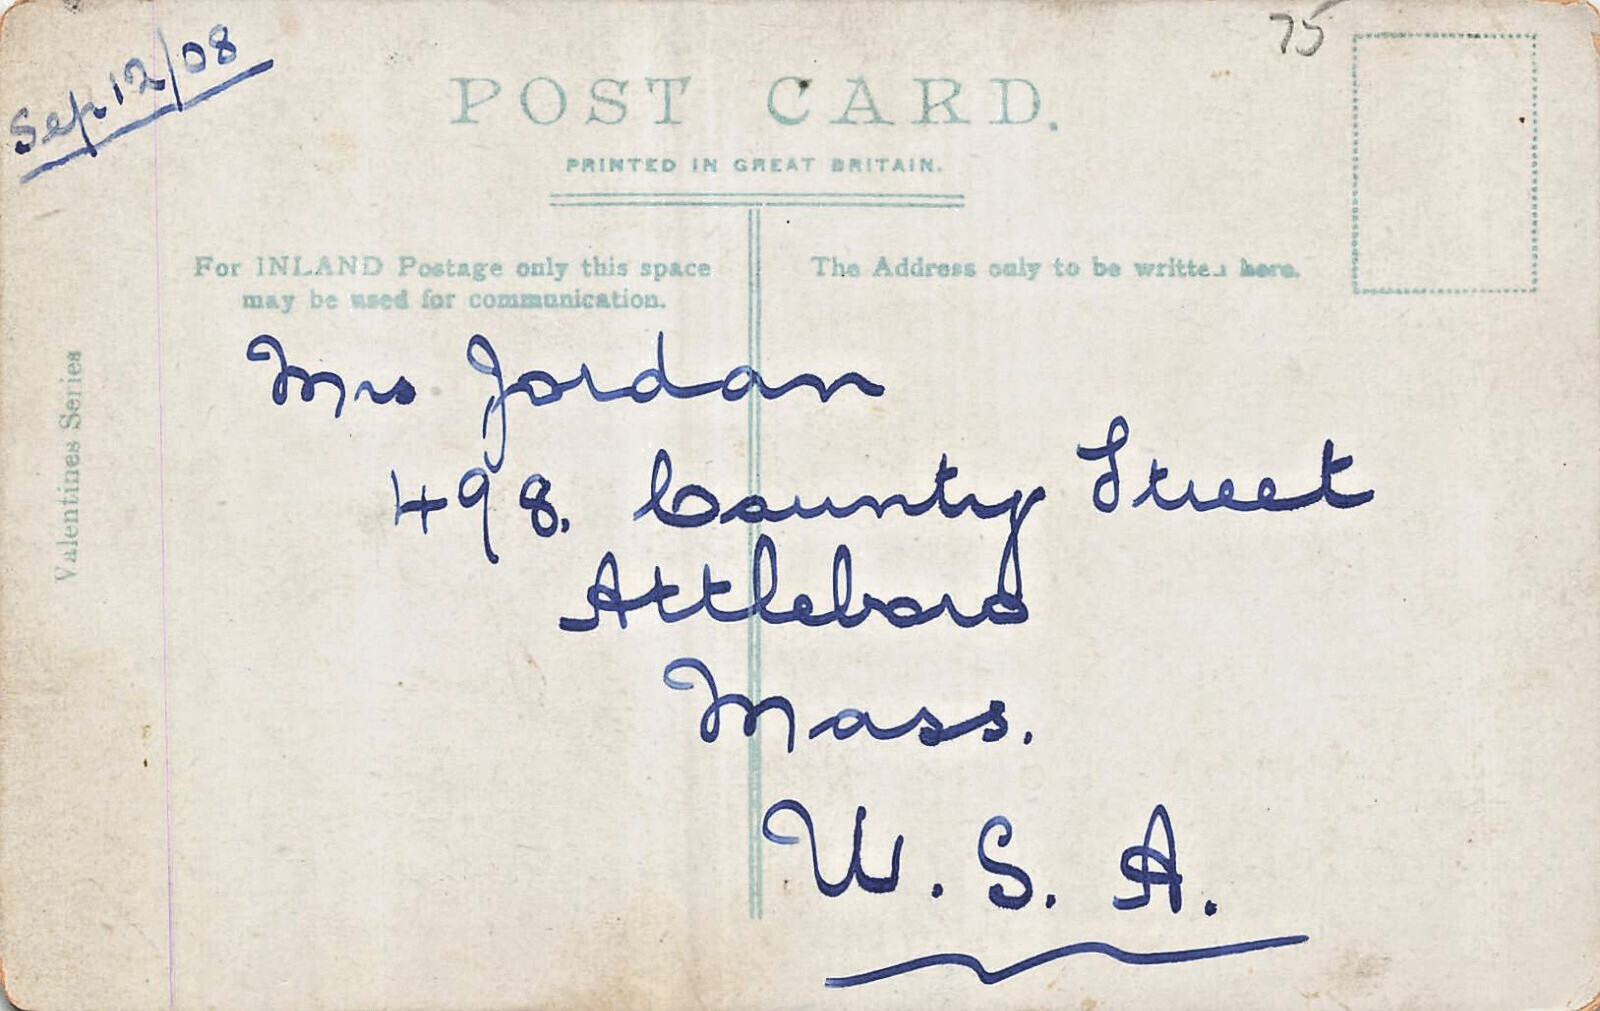 Sep. 12/08
75
POST CARD.
PRINTED IN GREAT BRITAIN.
For INLAND Postage only this space
may be used for communication.
The Address only to be written here.
Valentines Series
Mrs Jordan
498. County Street
Attleboro
Mass.
U. S. A.